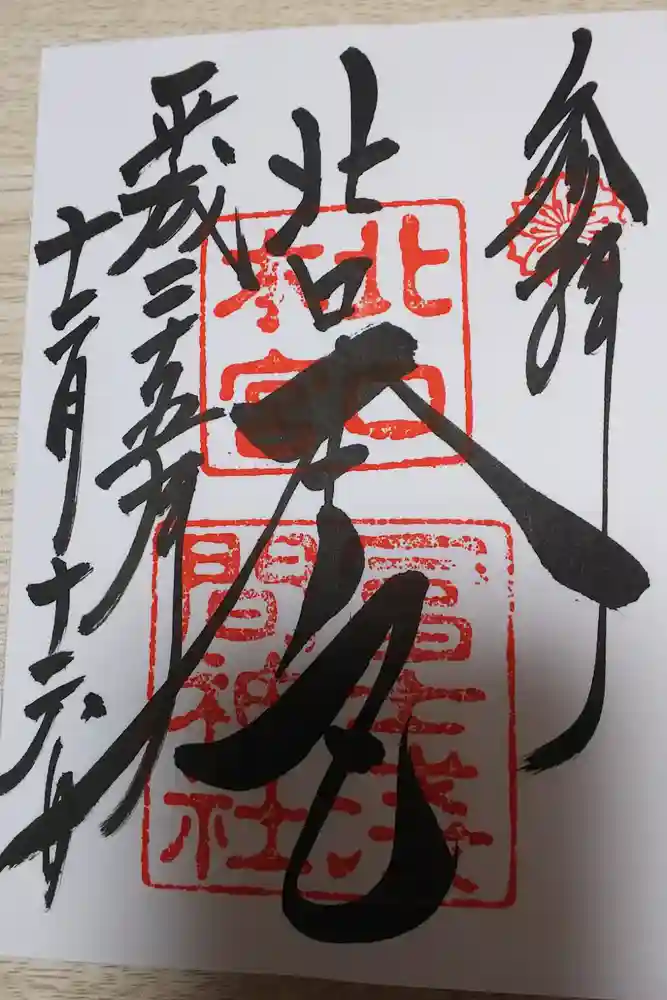 参拝
北口本宮
平成二十五年
十二月十六日
北口
本宮
冨士浅
間神社